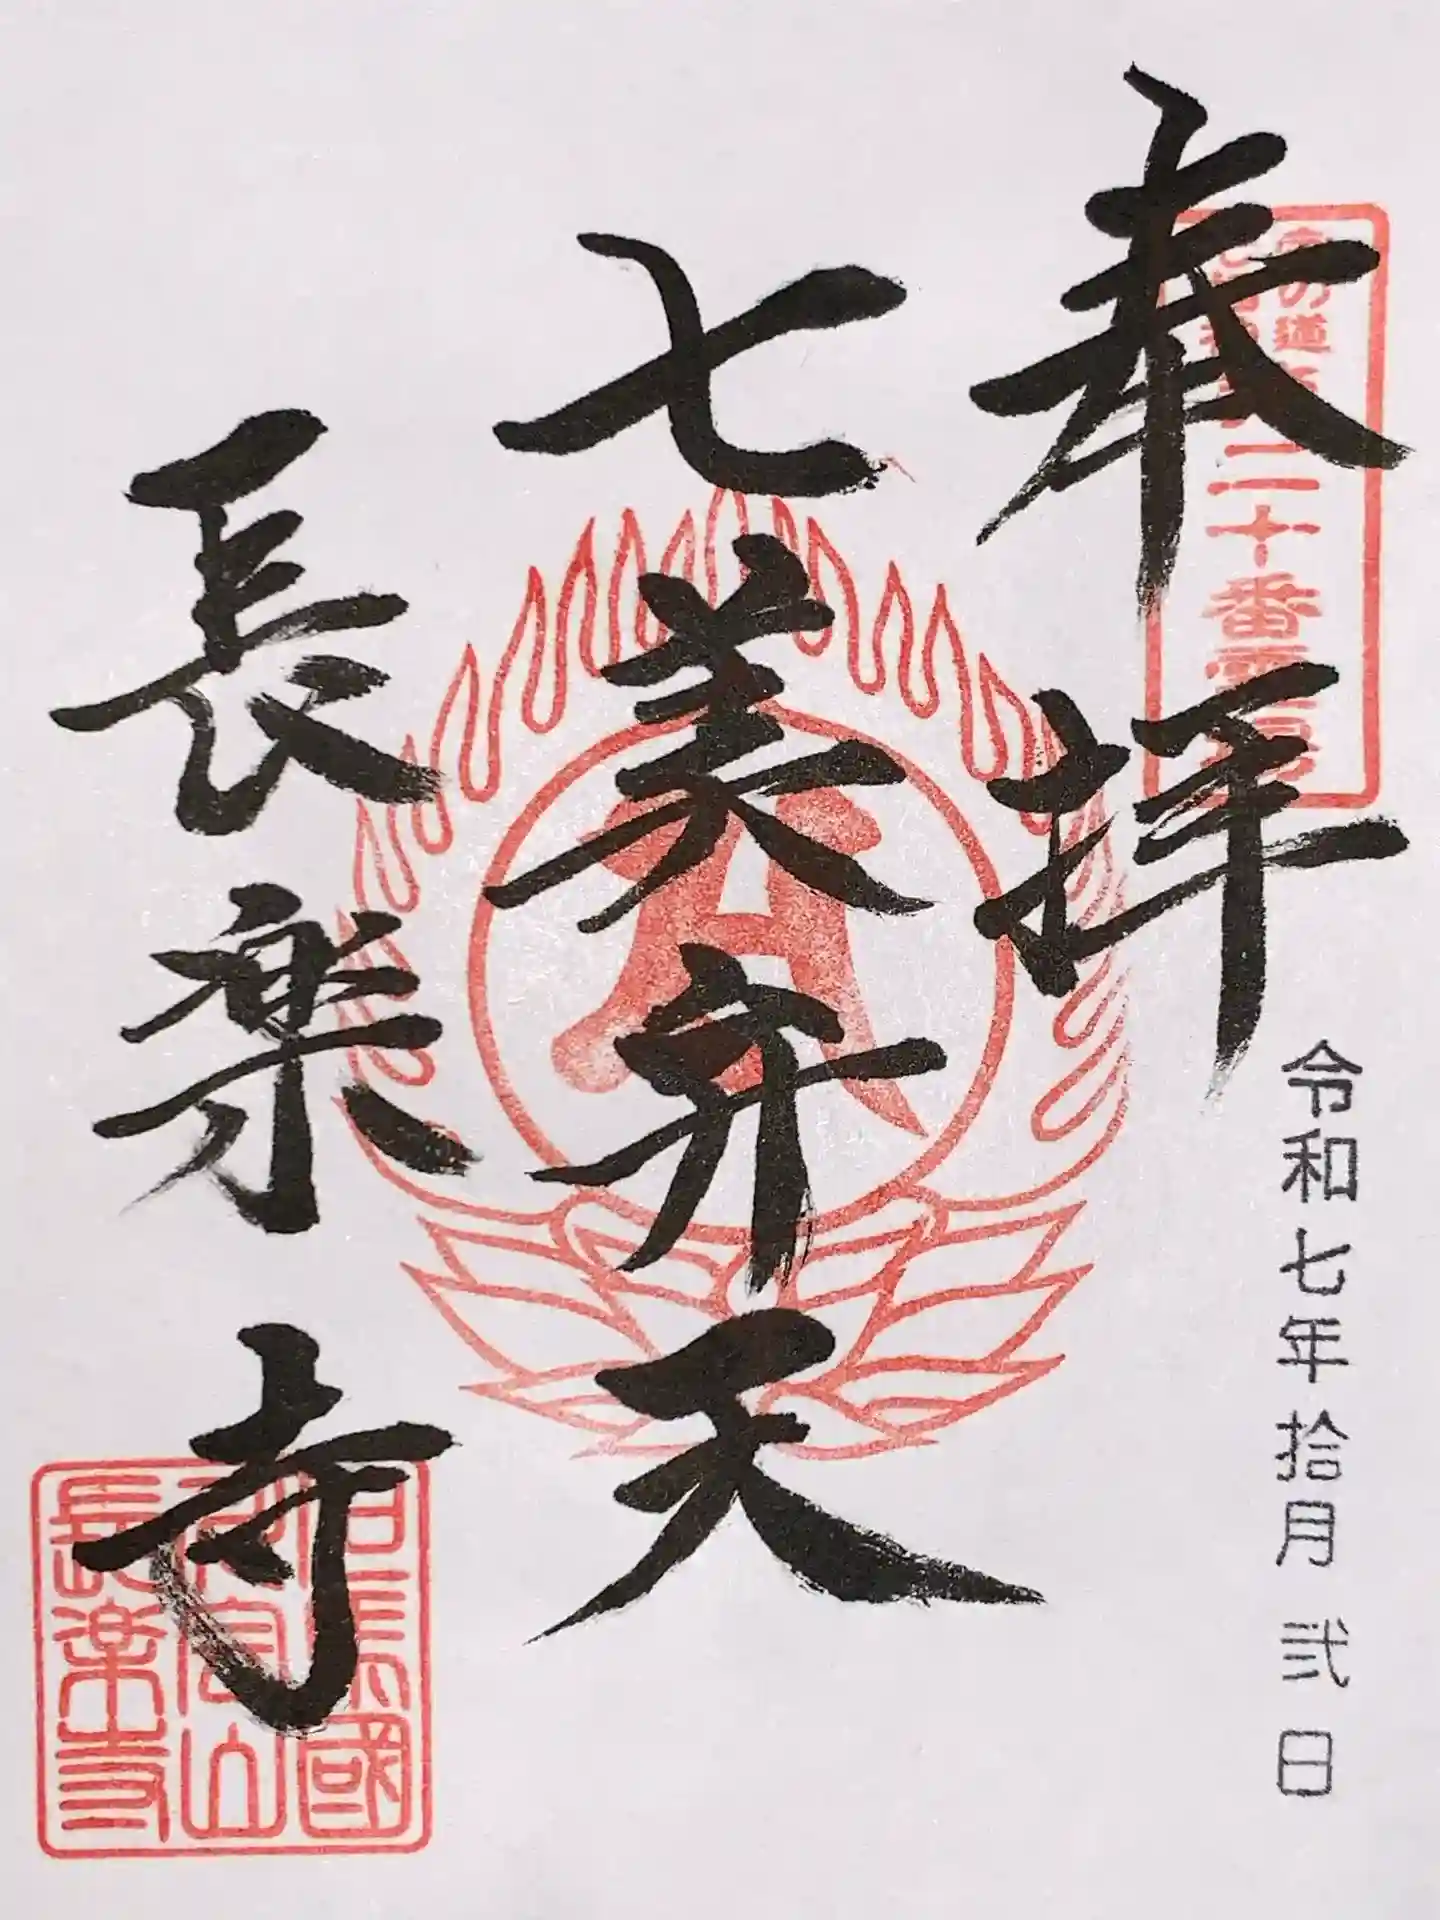 奉拝
の道
二十番
令和七年拾月弐日
七美弁天
長楽寺
國
山
長楽寺